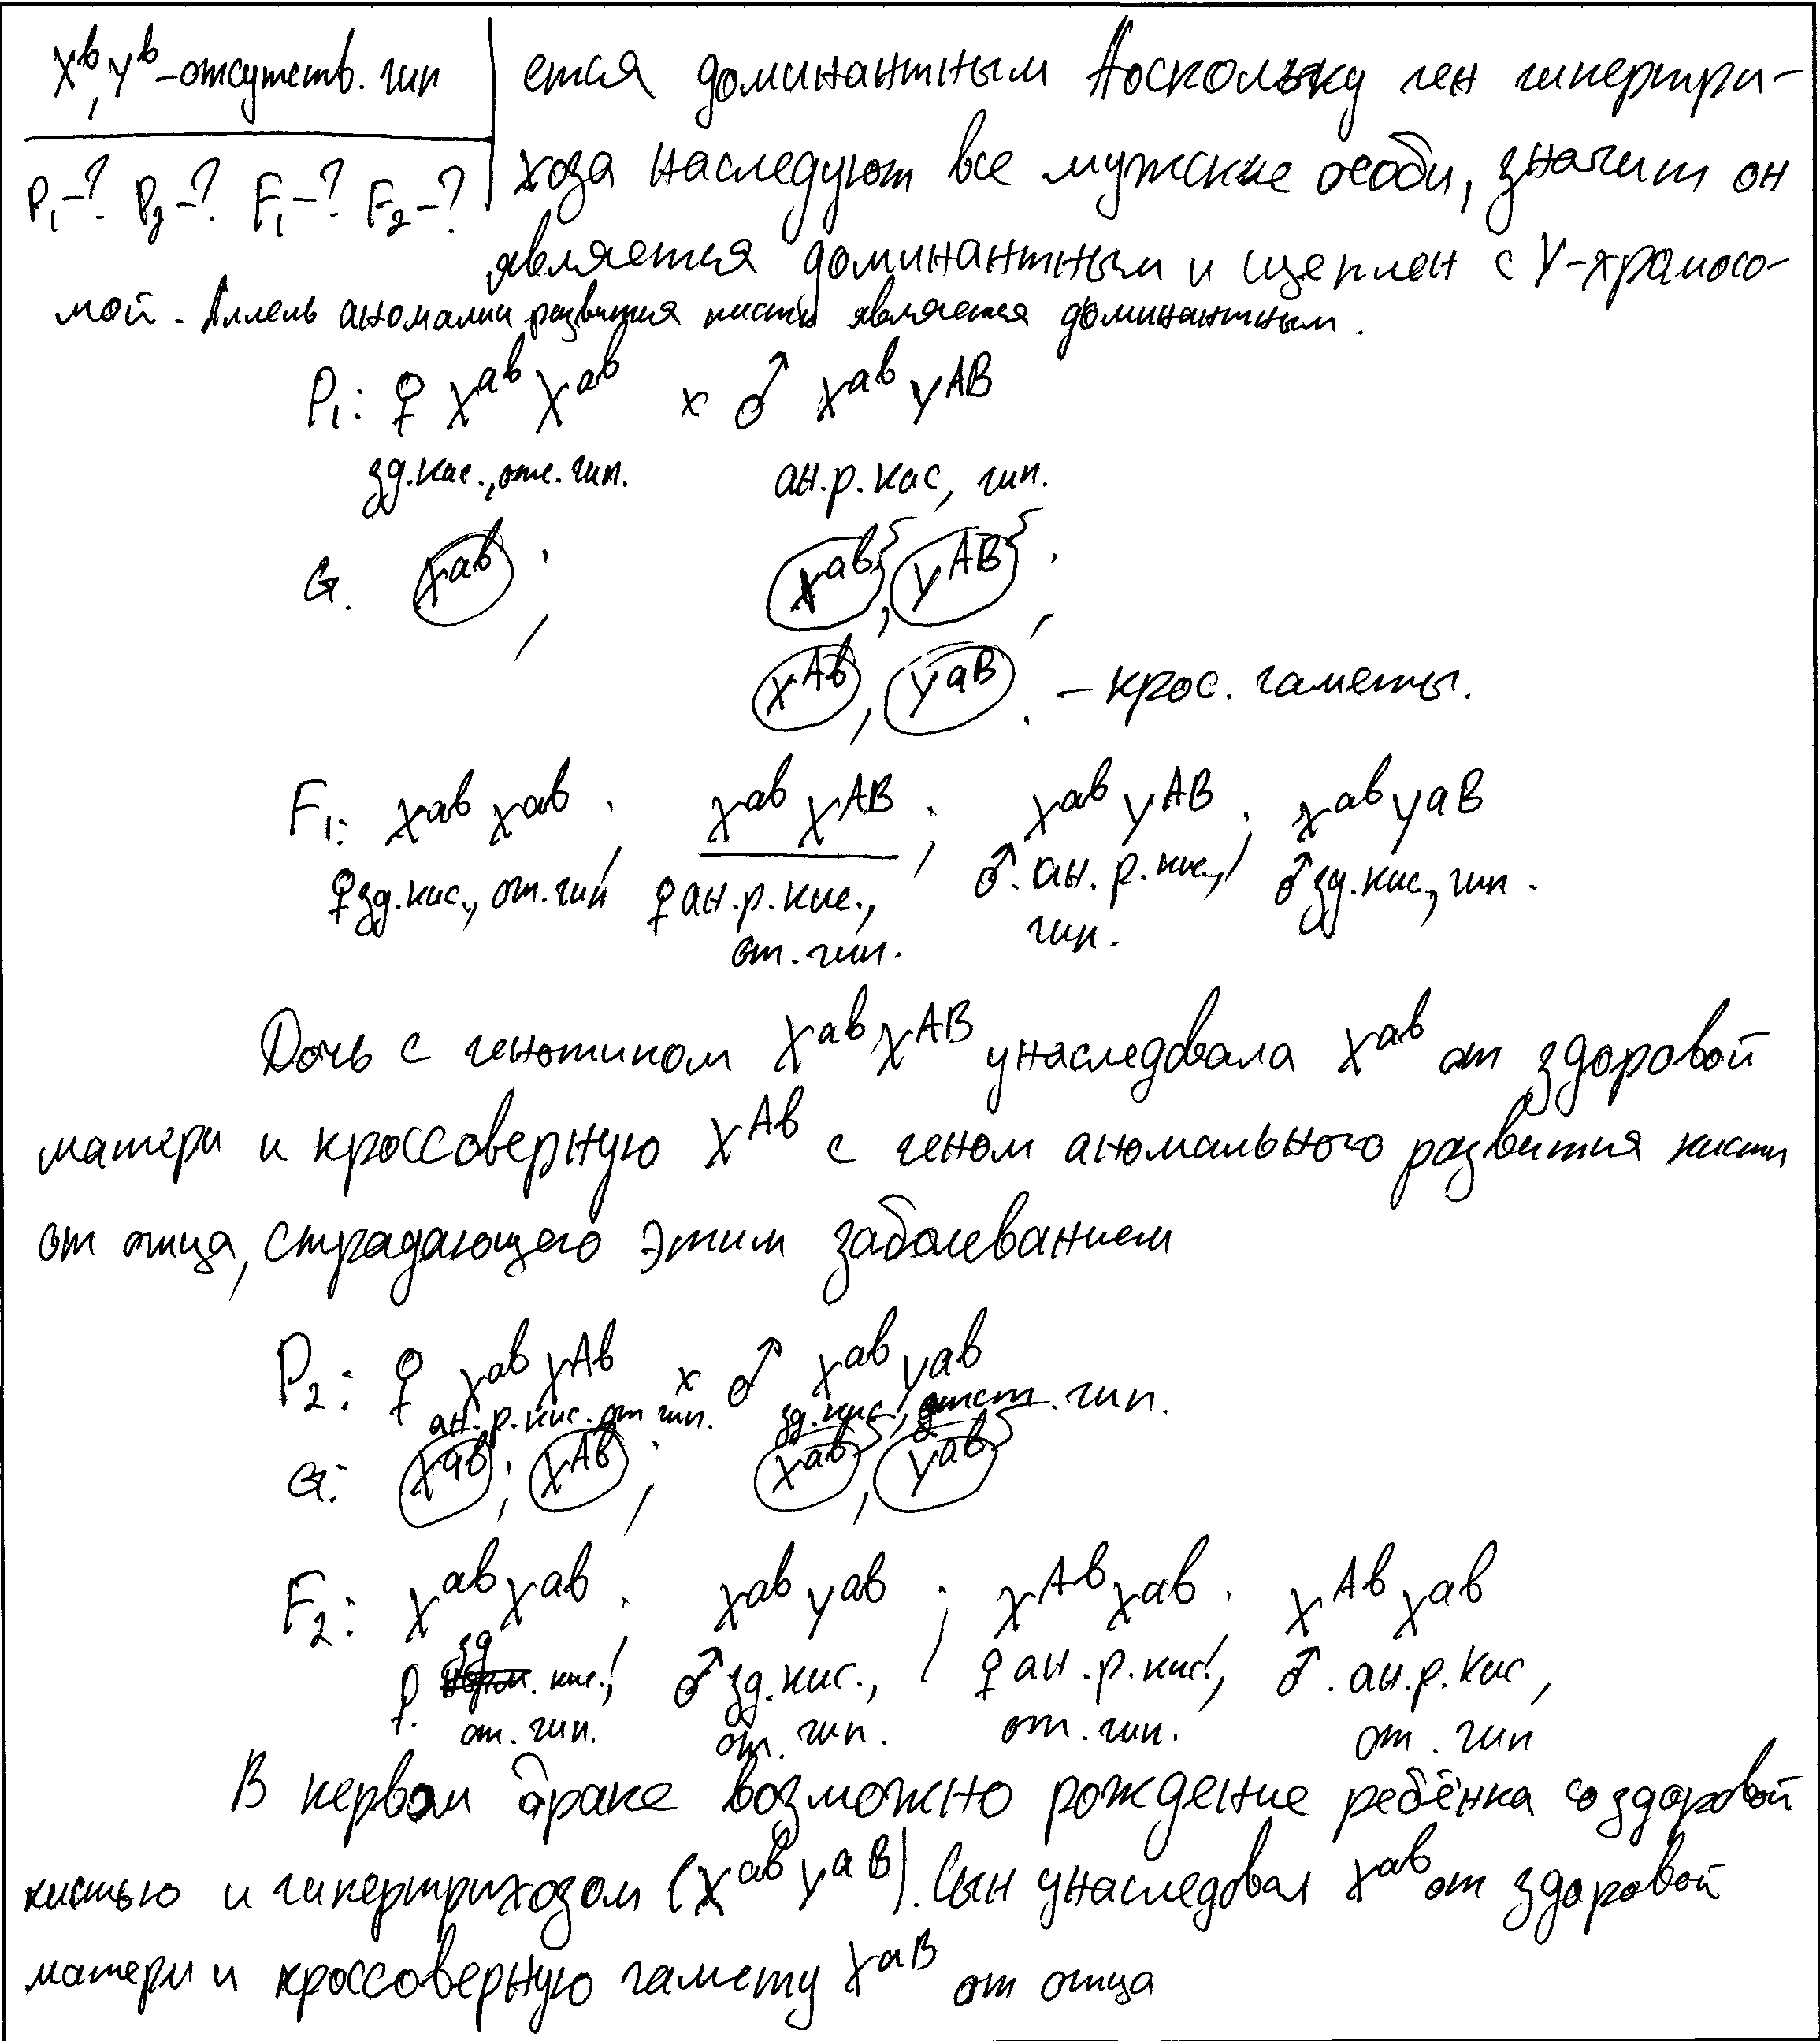 X^b, Y^b – отсутств. гип
P₁–? P₂–? F₁–? F₂–?
ется доминантным Поскольку ген гипертри-
хоза наследуют все мужские особи, значит он
является доминантным и сцеплен с Y-храмосо-
мой. Аллель аномалии развития кисти является доминантным.
P₁: ♀ X^ab X^ab x ♂ X^ab Y^AB
зд.кис., отс. гип. ан.р.кис, гип.
G. X^ab; X^ab, Y^AB;
X^Ab, Y^aB. – крос. гаметы.
F₁: X^ab X^ab; X^ab X^AB; X^ab Y^AB; X^ab Y^aB
♀зд.кис., от.гип ♀ан.р.кис., ♂.ан.р.кис., ♂зд.кис., гип.
от.гип. гип.
Дочь с генотипом X^ab X^AB унаследовала X^ab от здоровой
матери и кроссоверную X^Ab с геном аномального развития кисти
от отца, страдающего этим заболеванием
P₂: ♀ X^ab X^Ab x ♂ X^ab Y^ab
ан.р.кис. от гип. зд.кис., отст. гип.
G: X^ab; X^Ab; X^ab, Y^ab
F₂: X^ab X^ab; X^ab Y^ab; X^Ab X^ab; X^Ab X^ab
♀. зд. кис., ♂ зд.кис., ♀ ан.р.кис., ♂. ан.р.кис,
от.гип. от.гип. от.гип. от.гип
В первом браке возможно рождение ребёнка со здоровой
кистью и гипертрихозом (X^ab Y^aB). Сын унаследовал X^ab от здоровой
матери и кроссоверную гамету X^aB от отца